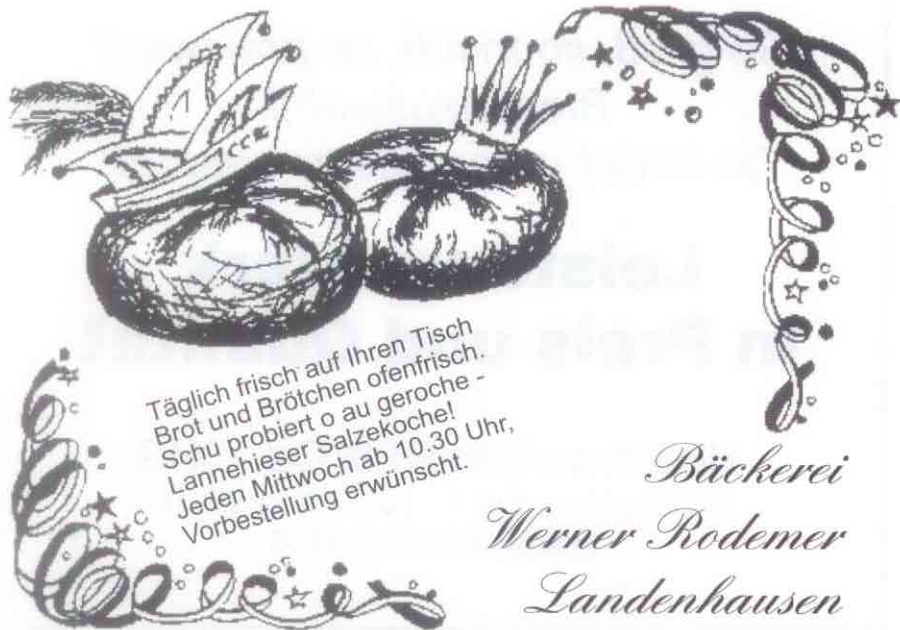 CCK
Täglich frisch auf Ihren Tisch
Brot und Brötchen ofenfrisch.
Schu probiert o au geroche -
Lannehieser Salzekoche!
Jeden Mittwoch ab 10.30 Uhr,
Vorbestellung erwünscht.
Bäckerei
Werner Rodemer
Landenhausen